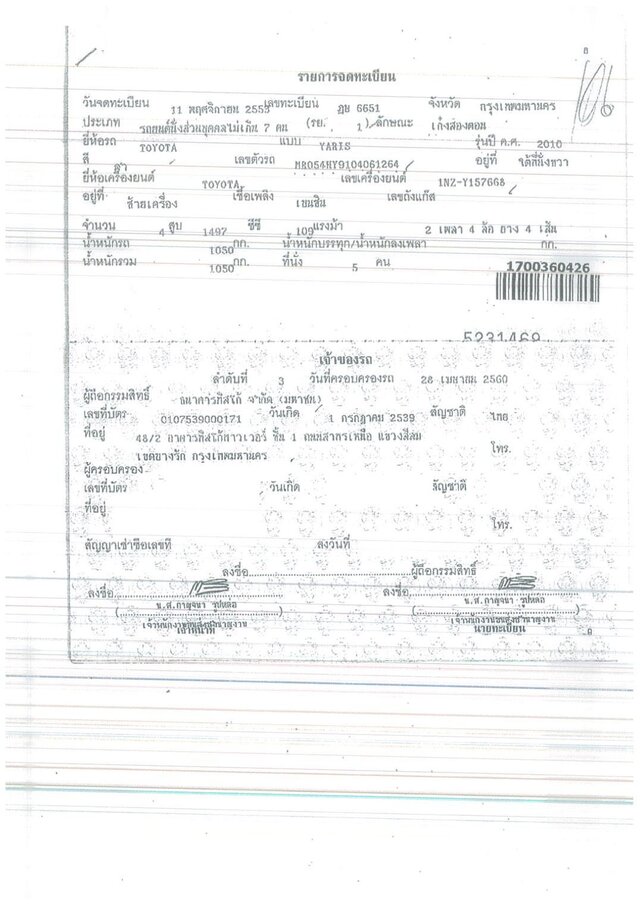 8
รายการจดทะเบียน
วันจดทะเบียน 11 พฤศจิกายน 2553 เลขทะเบียน ฎช 6651 จังหวัด กรุงเทพมหานคร
ประเภท รถยนต์นั่งส่วนบุคคลไม่เกิน 7 คน (รย. 1) ลักษณะ เก๋งสองตอน
ยี่ห้อรถ TOYOTA แบบ YARIS รุ่นปี ค.ศ. 2010
สี เลขตัวรถ MR054HY9104061264 อยู่ที่ ใต้ที่นั่งขวา
ยี่ห้อเครื่องยนต์ TOYOTA เลขเครื่องยนต์ 1NZ-Y157668
อยู่ที่ ซ้ายเครื่อง เชื้อเพลิง เบนซิน เลขถังแก๊ส
จำนวน 4 สูบ 1497 ซีซี 109 แรงม้า 2 เพลา 4 ล้อ ยาง 4 เส้น
น้ำหนักรถ 1050 กก. น้ำหนักบรรทุก/น้ำหนักลงเพลา กก.
น้ำหนักรวม 1050 กก. ที่นั่ง 5 คน
1700360426
5231469
เจ้าของรถ
ลำดับที่ 3 วันที่ครอบครองรถ 28 เมษายน 2560
ผู้ถือกรรมสิทธิ์ ธนาคารทิสโก้ จำกัด (มหาชน)
เลขที่บัตร 0107539000171 วันเกิด 1 กรกฎาคม 2539 สัญชาติ ไทย
ที่อยู่ 48/2 อาคารทิสโก้ทาวเวอร์ ชั้น 1 ถนนสาทรเหนือ แขวงสีลม
เขตบางรัก กรุงเทพมหานคร โทร.
ผู้ครอบครอง
เลขที่บัตร วันเกิด สัญชาติ
ที่อยู่
โทร.
สัญญาเช่าซื้อเลขที่ ลงวันที่
ลงชื่อ ผู้ถือกรรมสิทธิ์
ลงชื่อ ลงชื่อ
( น.ส.กาญจนา รูปหล่อ ) ( น.ส.กาญจนา รูปหล่อ )
เจ้าพนักงานขนส่งชำนาญงาน เจ้าพนักงานขนส่งชำนาญงาน
เจ้าหน้าที่ นายทะเบียน